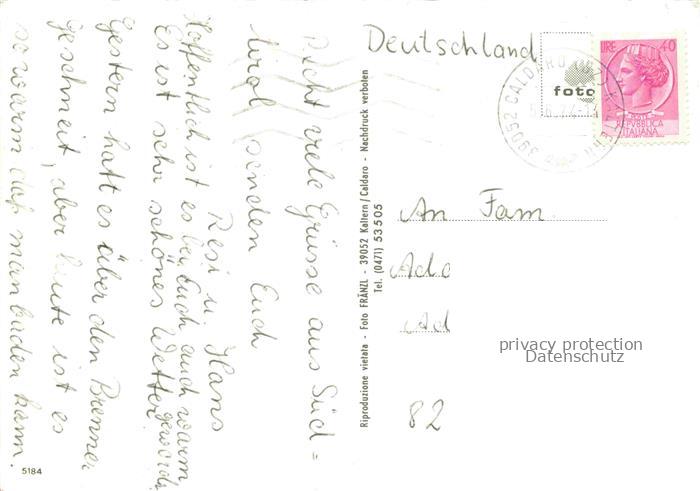 Recht viele Grüsse aus Süd=
tirol senden Euch
Resi u. Hans
Hoffentlich ist es bei Euch auch warm geworden
Es ist sehr schönes Wetter.
Gestern hatt es über den Brenner
geschneit, aber heute ist es
so warm daß man baden kann.
5184
Riproduzione vietata - Foto FRÄNZL - 39052 Kaltern/Caldaro - Nachdruck verboten
Tel. (0471) 53505
Deutschland
foto
LIRE 40
REPVBBLICA
ITALIANA
39052 CALDARO
An Fam.
Ado
Ad
82
privacy protection
Datenschutz